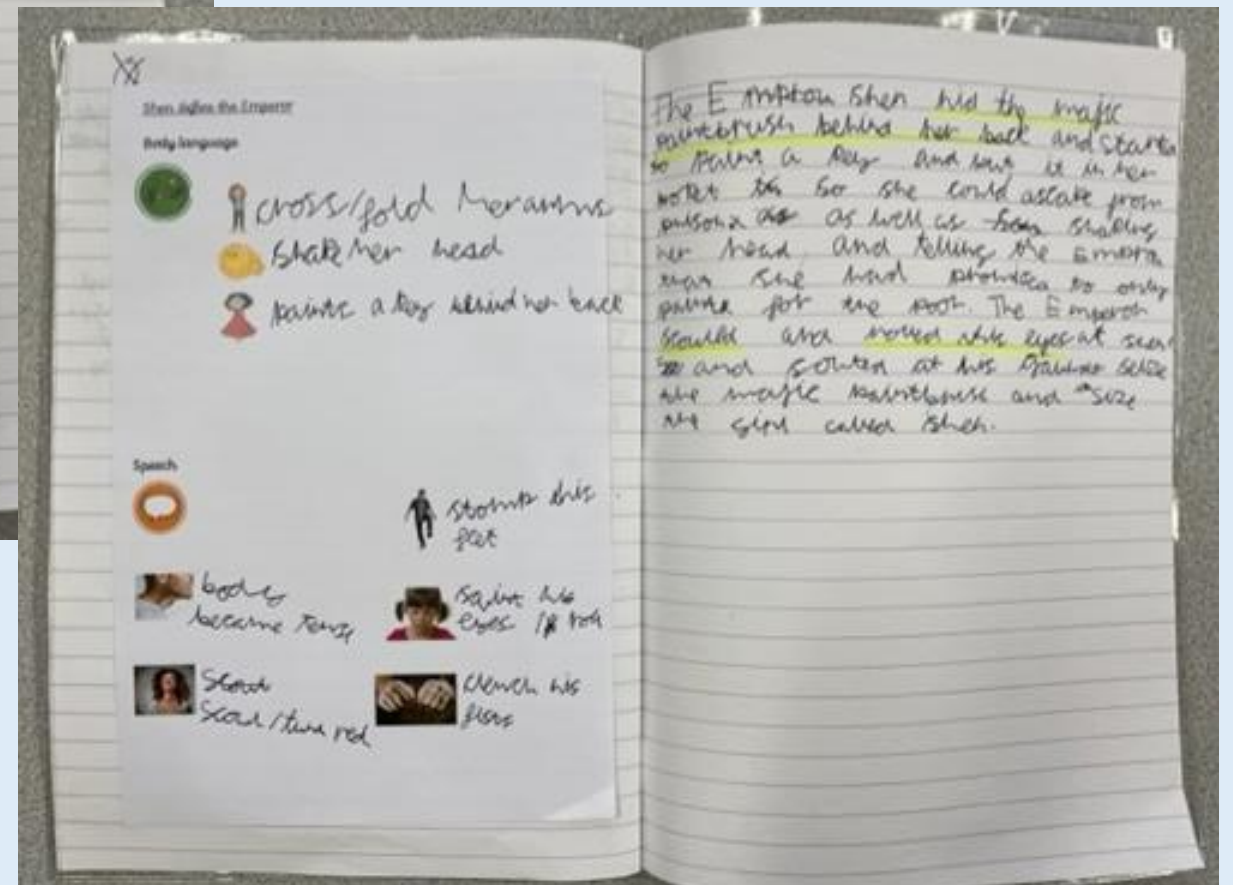 Shen defies the Emperor
Body language
cross/fold her arms
shake her head
paints a key behind her back
Speech
stomp his
feet
body
became tense
squint his
eyes / roll
scowl
scowl/turn red
clench his
fists
The Emperor Shen hid the majic
paintbrush behind her back and starts
to paint a key and put it in her
so she could ascape from
as as well as shaking
her head and telling the Emperor
that she had promised to only
paint for the poor. The Emperor
scould and rolled his eyes at shen
and at his seize
the majic paintbrush and size
the girl called shen.